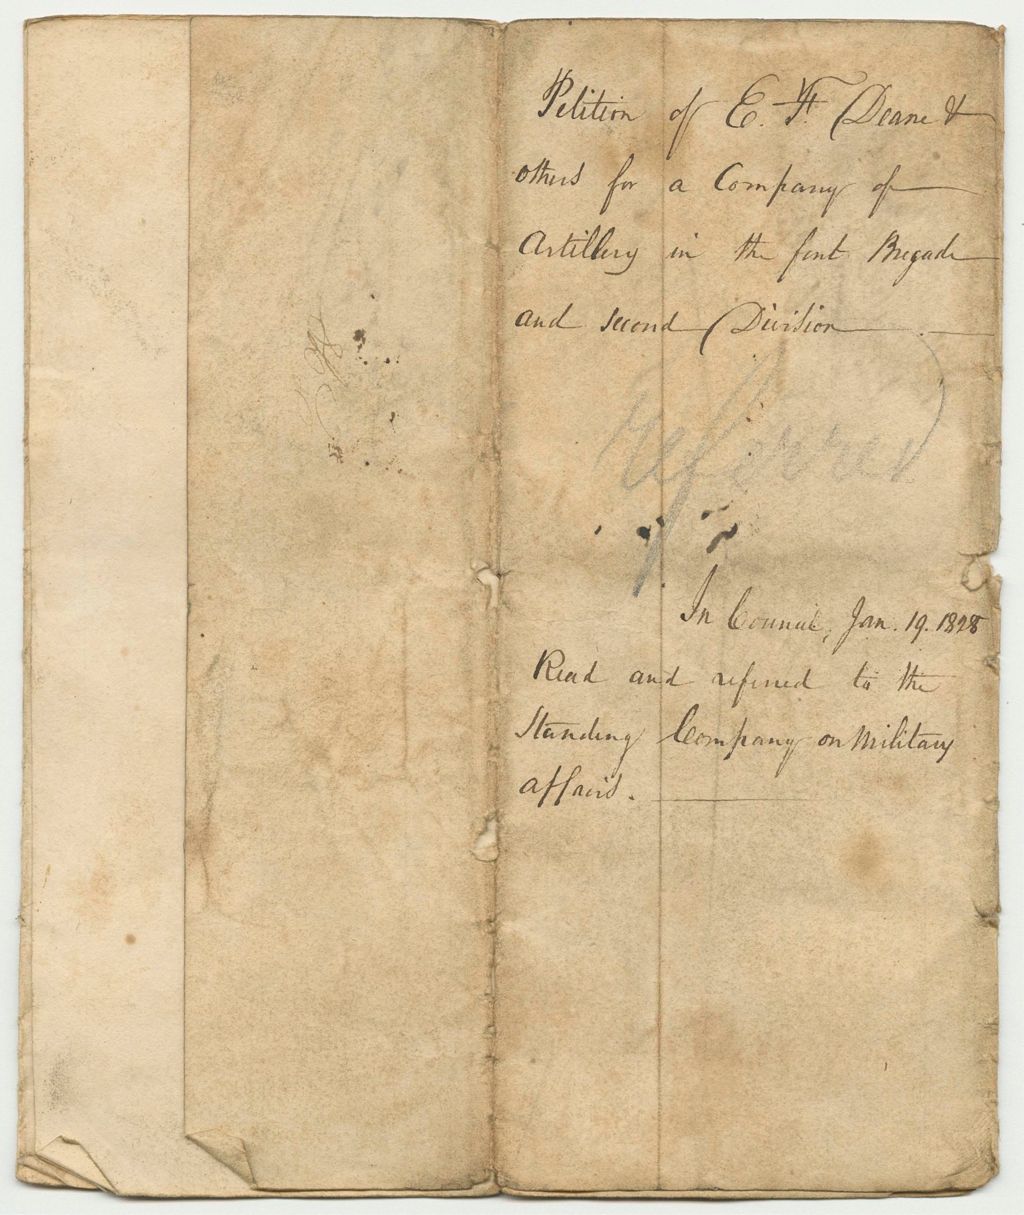 Petition of E. F. Deane &
others for a Company of
Artillery in the first Brigade
and second Division
referred
In Council, Jan. 19. 1828
Read and referred to the
Standing Company on Military
affairs.